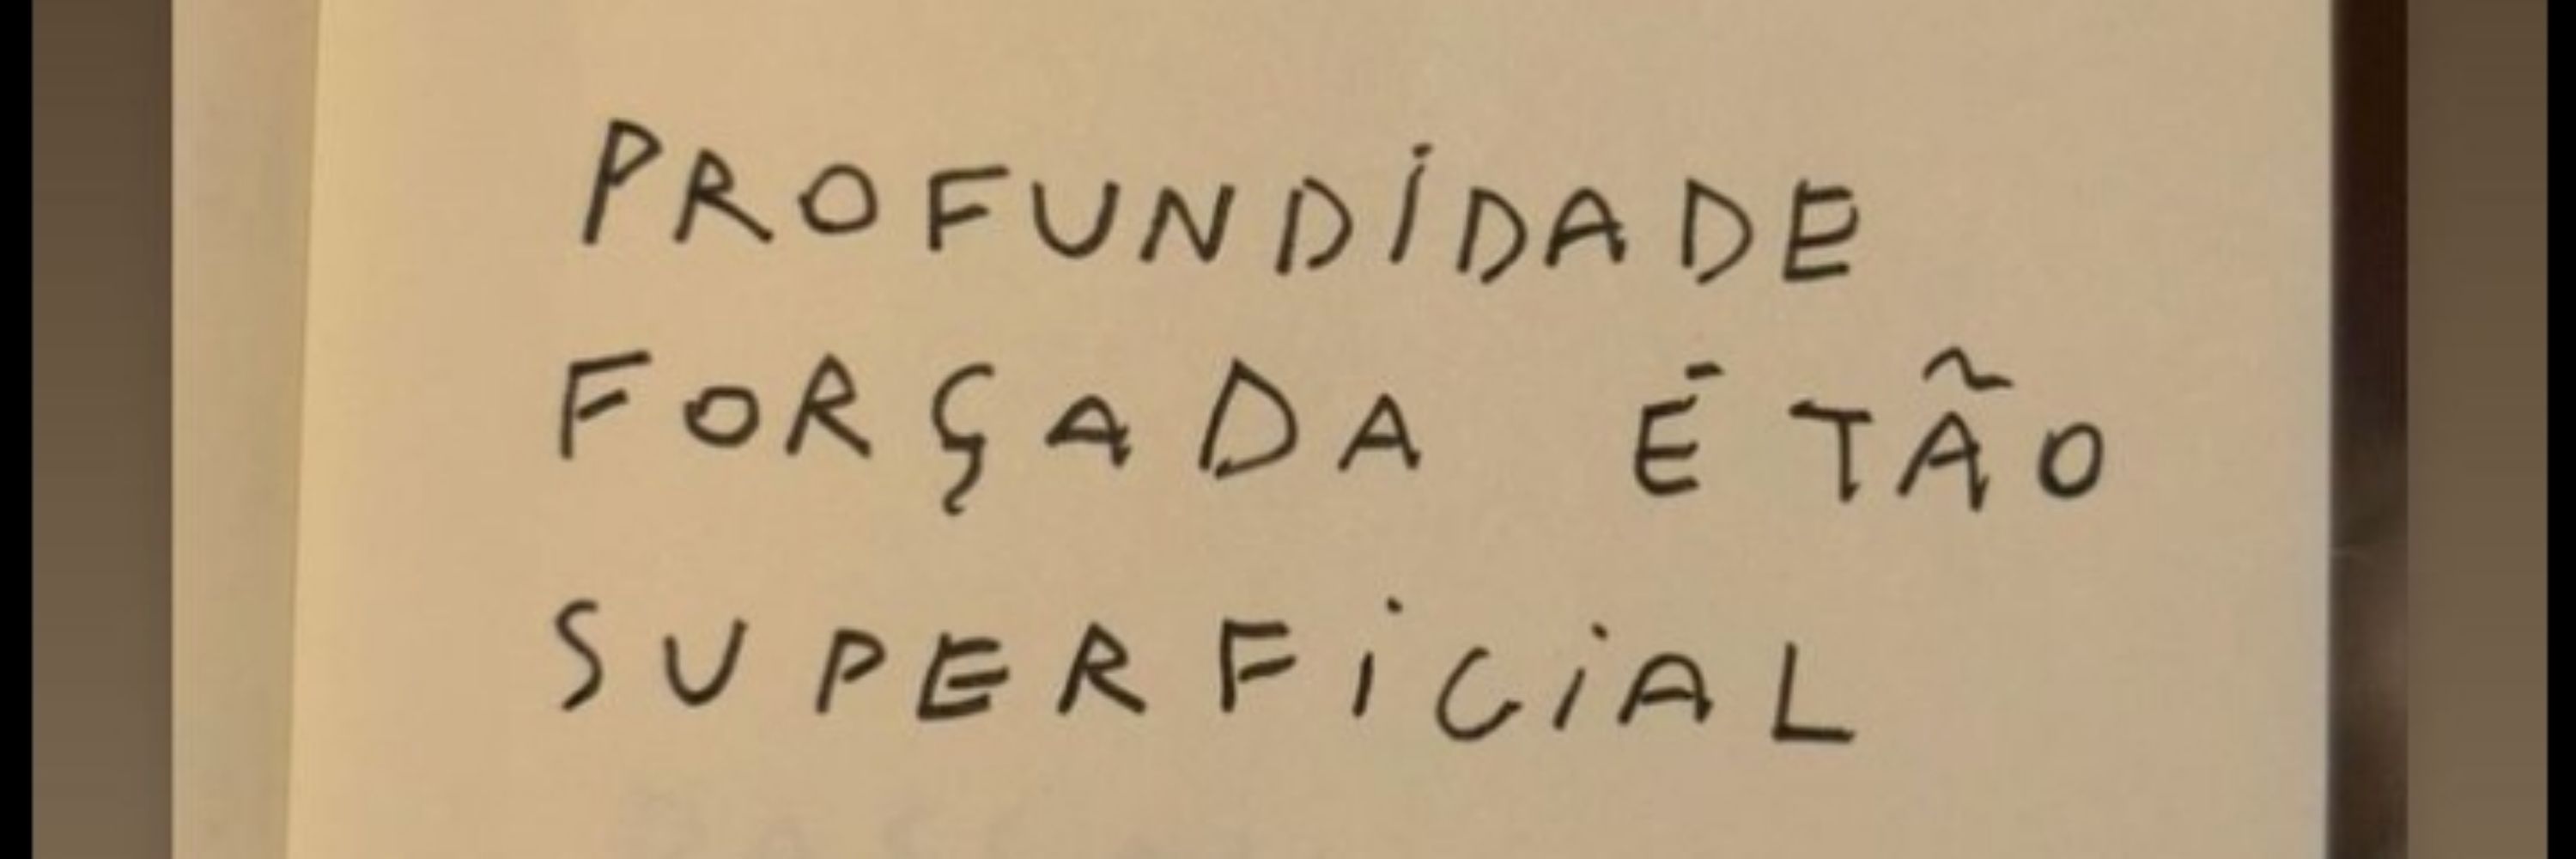 PROFUNDIDADE
FORÇADA É TÃO
SUPERFICIAL